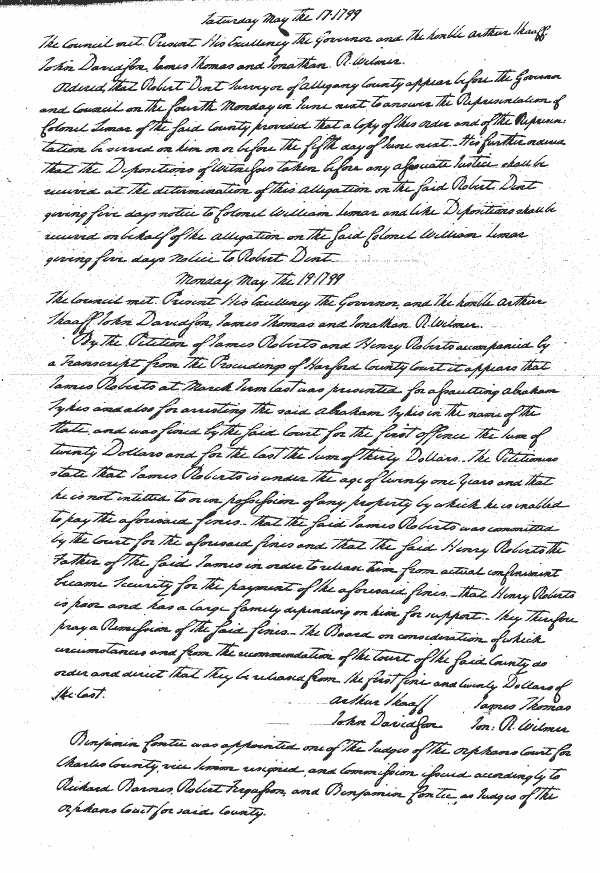 Saturday May the 17. 1799
The Council met. Present His Excellency the Governor and the honble Arthur Shaaff
John Davidson, James Thomas and Jonathan R. Wilmer.
Ordered, that Robert Dent Surveyor of Allegany County appear before the Governor
and Council on the fourth Monday in June next to answer the Representation of
Colonel Lamar of the said County provided that a copy of this order and of the Represen-
tation be served on him on or before the fifth day of June next. It is further ordered
that the Depositions of Witnesses taken before any associate Justice shall be
received at the determination of this allegation on the said Robert Dent
giving five days notice to Colonel William Lamar and like Depositions shall be
received on behalf of the allegation on the said Colonel William Lamar
giving five days notice to Robert Dent.
Monday May the 19. 1799
The Council met. Present His Excellency the Governor, and the honble Arthur
Shaaff John Davidson, James Thomas and Jonathan R. Wilmer.
By the Petition of James Roberts and Henry Roberts accompanied by
a Transcript from the Proceedings of Harford County Court it appears that
James Roberts at March Term last was presented for assaulting Abraham
Sykes and also for arresting the said Abraham Sykes in the name of the
State, and was fined by the said Court for the first offence the sum of
twenty Dollars and for the last the sum of thirty Dollars. The Petitioners
state that James Roberts is under the age of twenty one Years and that
he is not intitled to or in possession of any property by which he is enabled
to pay the aforesaid fines. that the said James Roberts was committed
by the Court for the aforesaid fines and that the said Henry Roberts the
Father of the said James in order to release him from actual confinement
became Security for the payment of the aforesaid fines. that Henry Roberts
is poor and has a large family depending on him for support. they therefore
pray a Remission of the said fines. The Board on consideration of which
circumstances and from the recommendation of the Court of the said County do
order and direct that they be released from the first fine and twenty Dollars of
the last.
Arthur Shaaff James Thomas
John Davidson Jon: R. Wilmer
Benjamin Contee was appointed one of the Judges of the Orphans Court for
Charles County, vice resigned, and Commission issued accordingly to
Richard Barnes, Robert Fergusson, and Benjamin Contee, as Judges of the
Orphans Court for said County.